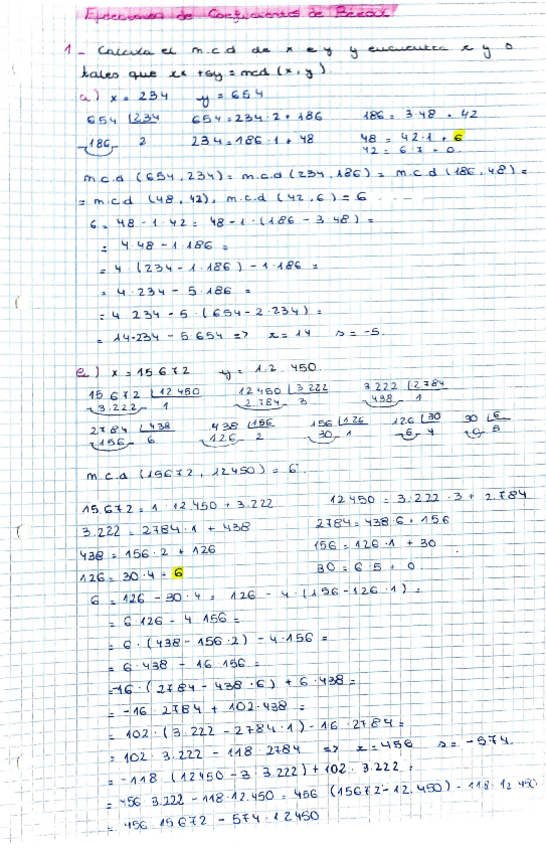 Ejercicios de Coeficientes de Bezout
1- Calcula el m.c.d de x e y y encuentra r y s
tales que rx + sy = mcd (x, y)
a) x = 234 y = 654
654 234 654 = 234·2 + 186 186 = 3·48 + 42
186 2 234 = 186·1 + 48 48 = 42·1 + 6
42 = 6·7 + 0
m.c.d (654, 234) = m.c.d (234, 186) = m.c.d (186, 48) =
= m.c.d (48, 42), m.c.d (42, 6) = 6
6 = 48 - 1·42 = 48 - 1·(186 - 3·48) =
= 4·48 - 1·186 =
= 4·(234 - 1·186) - 1·186 =
= 4·234 - 5·186 =
= 4·234 - 5·(654 - 2·234) =
= 14·234 - 5·654 => r = 14 s = -5.
e) x = 15672 y = 12.450.
15672 12450 12450 3.222 3.222 2784
3.222 1 2.784 3 438 1
2784 438 438 156 156 126 126 30 30 6
156 6 126 2 30 1 6 4 0 5
m.c.d (15672, 12450) = 6.
15.672 = 1·12.450 + 3.222 12450 = 3.222·3 + 2784
3.222 = 2784·1 + 438 2784 = 438·6 + 156
438 = 156·2 + 126 156 = 126·1 + 30
126 = 30·4 + 6 30 = 6·5 + 0.
6 = 126 - 30·4 = 126 - 4·(156 - 126·1) =
= 6·126 - 4·156 =
= 6·(438 - 156·2) - 4·156 =
= 6·438 - 16·156 =
= -16·(2784 - 438·6) + 6·438 =
= -16·2784 + 102·438 =
= 102·(3.222 - 2784·1) - 16·2784 =
= 102·3.222 - 118·2784 => r = 456 s = -574.
= -118·(12450 - 3·3.222) + 102·3.222 =
= 456·3.222 - 118·12.450 = 456·(15672 - 12.450) - 118·12.450
= 456·15672 - 574·12450